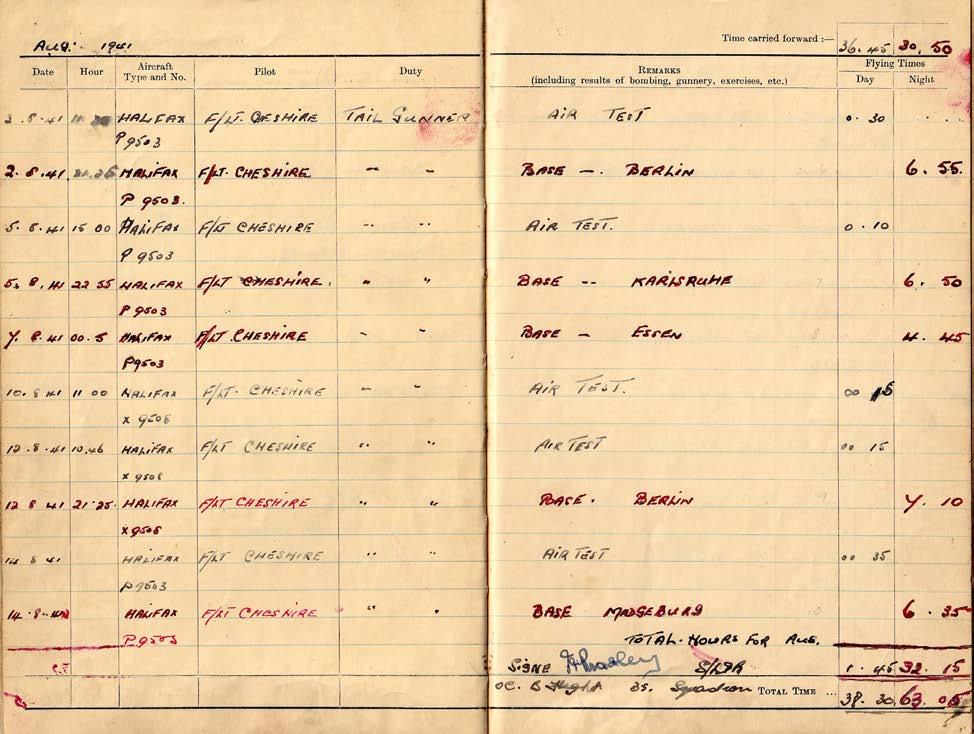 Aug: 1941
Time carried forward :— 36.45 30.50
Date Hour Aircraft Type and No. Pilot Duty Remarks (including results of bombing, gunnery, exercises, etc.) Flying Times Day Night
2.8.41 HALIFAX F/LT. CHESHIRE TAIL GUNNER AIR TEST 0.30
P9503
2.8.41 HALIFAX F/LT. CHESHIRE " " BASE — BERLIN 6.55
P 9503.
5.8.41 15 00 HALIFAX F/LT CHESHIRE " " AIR TEST. 0.10
P 9503
5.8.41 22 55 HALIFAX F/LT CHESHIRE. " " BASE -- KARLSRUHE 6.50
P 9503
7.8.41 00.5 HALIFAX F/LT. CHESHIRE " " BASE — ESSEN 4.45
P9503
10.8.41 11 00 HALIFAX F/LT. CHESHIRE " " AIR TEST. 00 15
X 9508
12.8.41 10.46 HALIFAX F/LT CHESHIRE " " AIR TEST 00 15
X 9508
12 8 41 21.25. HALIFAX F/LT CHESHIRE " " BASE. BERLIN 7.10
X 9508
14 8 41 HALIFAX F/LT CHESHIRE " " AIR TEST 00 35
P9503
14.8.41 HALIFAX F/LT CHESHIRE " " BASE MAGEBURG 6.35
P.9503 TOTAL.HOURS FOR AUG.
SIGNE S/LDR 1.45 32.15
OC. B Flight 35. Squadron Total Time ... 38.30 63.05